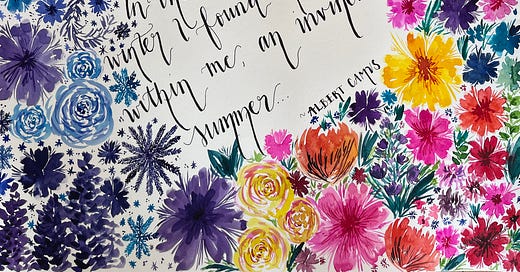 In
winter I found
within me, an
summer...
~ALBERT CAMUS